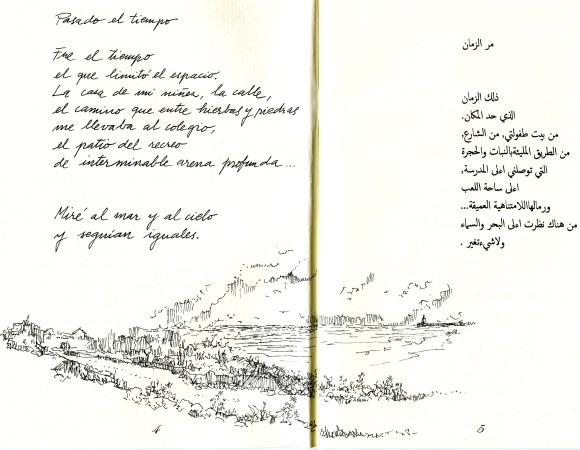 Pasado el tiempo
Fue el tiempo
el que limitó el espacio.
La casa de mi niñez, la calle,
el camino que entre hierbas y piedras
me llevaba al colegio,
el patio del recreo
de interminable arena profunda...
Miré al mar y al cielo
y seguían iguales.
4
مر الزمان
ذلك الزمان
الذي حد المكان.
من بيت طفولتي, من الشارع,
من الطريق المليئةبالنبات والحجرة
التي توصلني اعلى المدرسة,
اعلى ساحة اللعب
ورمالهااللامتناهية العميقة...
من هناك نظرت اعلى البحر والسماء
ولاشيءتغير .
5